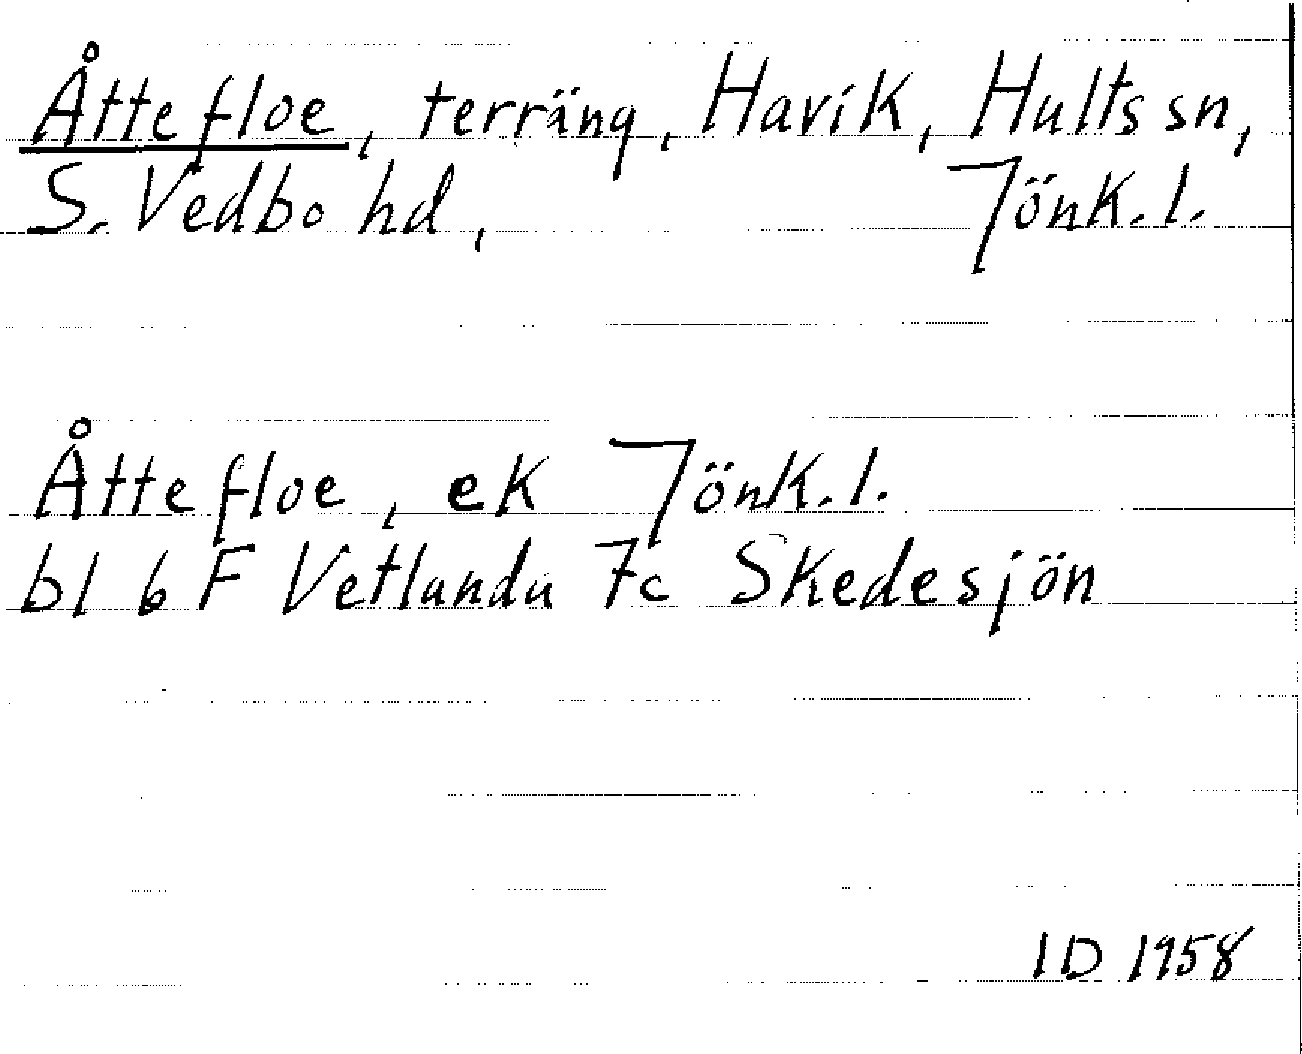 Åttefloe, terräng, Havik, Hults sn,
S. Vedbo hd, Jönk. l.
Åttefloe, ek Jönk. l.
bl 6 F Vetlanda 7c Skedesjön
ID 1958